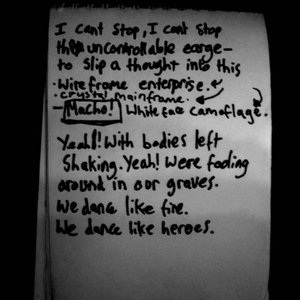 I cant stop, I cant stop
this uncontrollable earge-
to slip a thought into this
·Wireframe enterprise.
·crystal mainframe.
- Macho! White face camoflage.
Yeah!! With bodies left
Shaking. Yeah! Were fooling
around in our graves.
We dance like fire.
We dance like heroes.